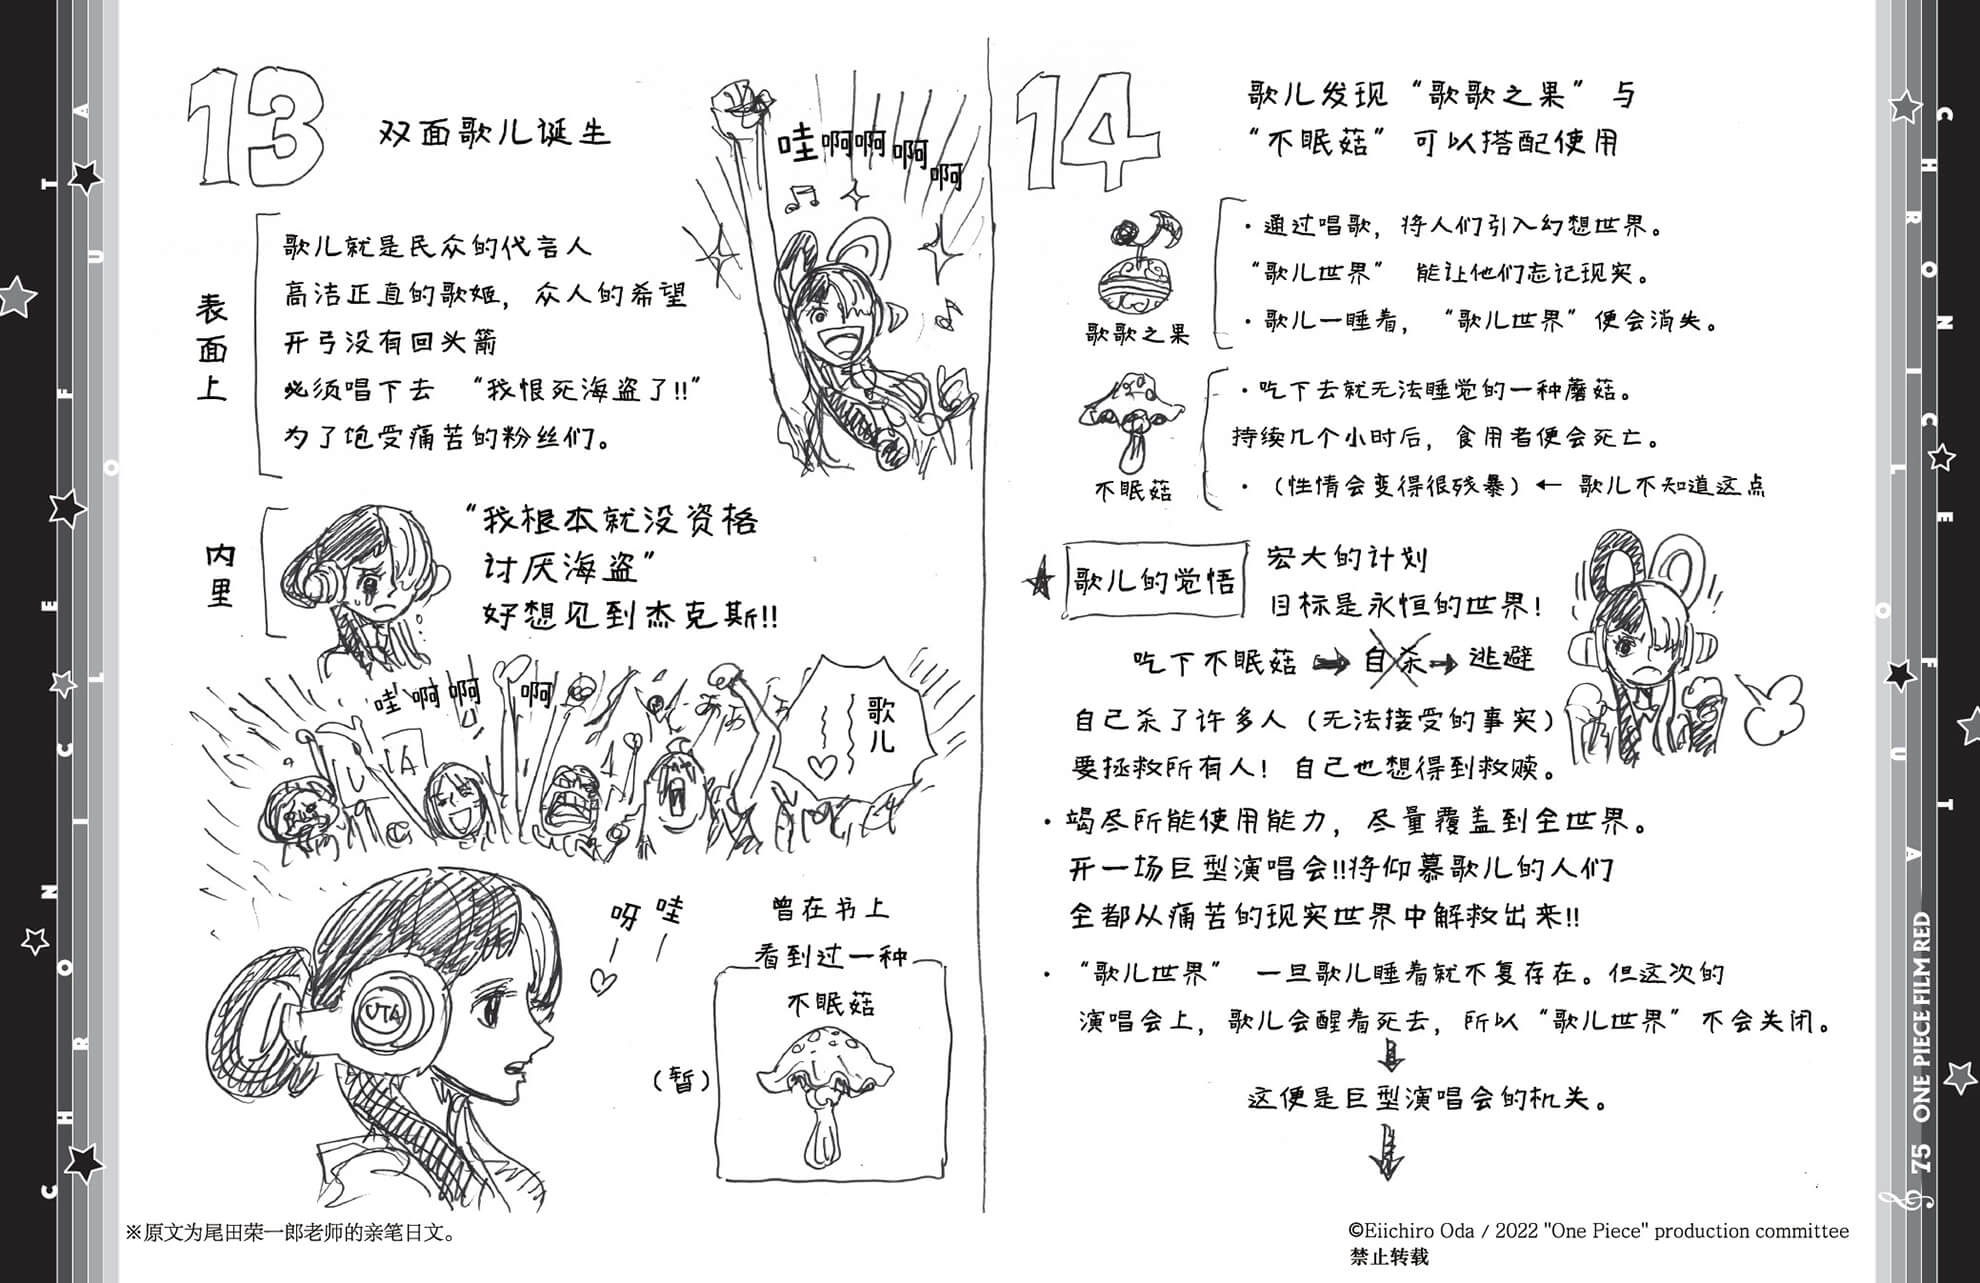 CHRONICLE OF UTA
13
双面歌儿诞生
哇啊啊啊啊
表面上
歌儿就是民众的代言人
高洁正直的歌姬，众人的希望
开弓没有回头箭
必须唱下去 “我恨死海盗了!!”
为了饱受痛苦的粉丝们。
内里
“我根本就没资格
讨厌海盗”
好想见到杰克斯!!
哇啊啊 啊
UTA
歌儿
UTA
呀 哇
曾在书上
看到过一种
不眠菇
（暂）
※原文为尾田荣一郎老师的亲笔日文。
14
歌儿发现“歌歌之果”与
“不眠菇” 可以搭配使用
歌歌之果
・通过唱歌，将人们引入幻想世界。
“歌儿世界” 能让他们忘记现实。
・歌儿一睡着，“歌儿世界”便会消失。
不眠菇
・吃下去就无法睡觉的一种蘑菇。
持续几个小时后，食用者便会死亡。
・（性情会变得很残暴）← 歌儿不知道这点
★ 歌儿的觉悟
宏大的计划
目标是永恒的世界!
吃下不眠菇 → 自杀 → 逃避
自己杀了许多人（无法接受的事实）
要拯救所有人! 自己也想得到救赎。
・竭尽所能使用能力，尽量覆盖到全世界。
开一场巨型演唱会!!将仰慕歌儿的人们
全都从痛苦的现实世界中解救出来!!
・“歌儿世界” 一旦歌儿睡着就不复存在。但这次的
演唱会上，歌儿会醒着死去，所以“歌儿世界”不会关闭。
↓
这便是巨型演唱会的机关。
↓
©Eiichiro Oda / 2022 "One Piece" production committee
禁止转载
CHRONICLE OF UTA
75 ONE PIECE FILM RED